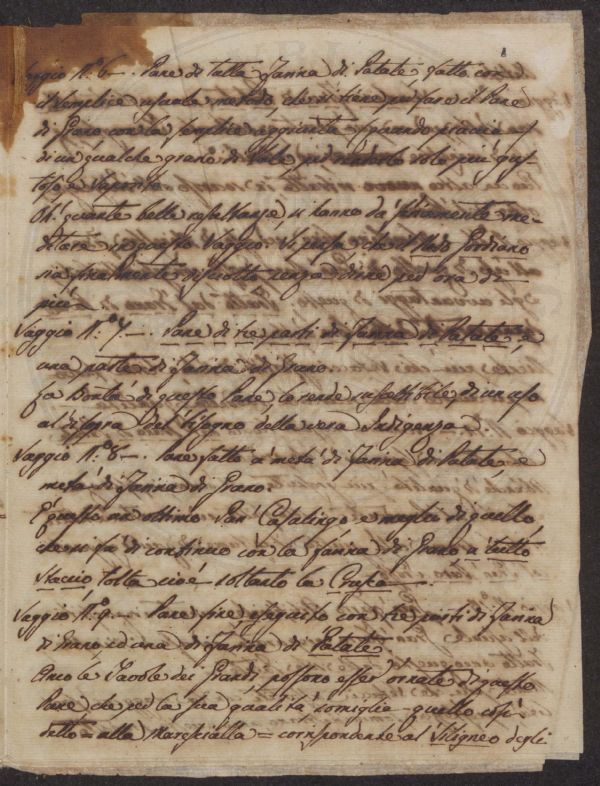 Saggio N.º 6 — Pane di tutta Farina di Patate fatto con
il semplice usuale metodo, che si tiene per fare il Pane
di Grano con la semplice aggiunta quando piaccia
di un qualche grano di Sale per renderlo solo più gus-
toso e saporito
Oh quante belle si hanno da seriamente me-
ditare in questo Saggio. Si pensa che il
sia finalmente disciolto senza dirne per ora di
più.
Saggio N.º 7 — Pane di tre parti di Farina di Patate, e
una parte di Farina di Grano.
La Bontà di questo Pane, lo rende suscettibile, di un uso
al disopra del bisogno della vera Indigenza.
Saggio N.º 8 — Pane fatto a metà di Farina di Patate, e
metà di Farina di Grano.
È questo un ottimo Pan' Casalingo e meglio di quello,
che si fà di continuo con la farina di Grano a tutto
staccio tolta cioè soltanto la Crusca.
Saggio N.º 9 — Pane fine eseguito con tre parti di Farina
di Grano ed una di Farina di Patate.
Anco le Tavole dei Grandi possono esser' ornate di questo
Pane che per la sua qualità somiglia quello così
detto = alla Marescialla = corrispondente al Siligneo degli